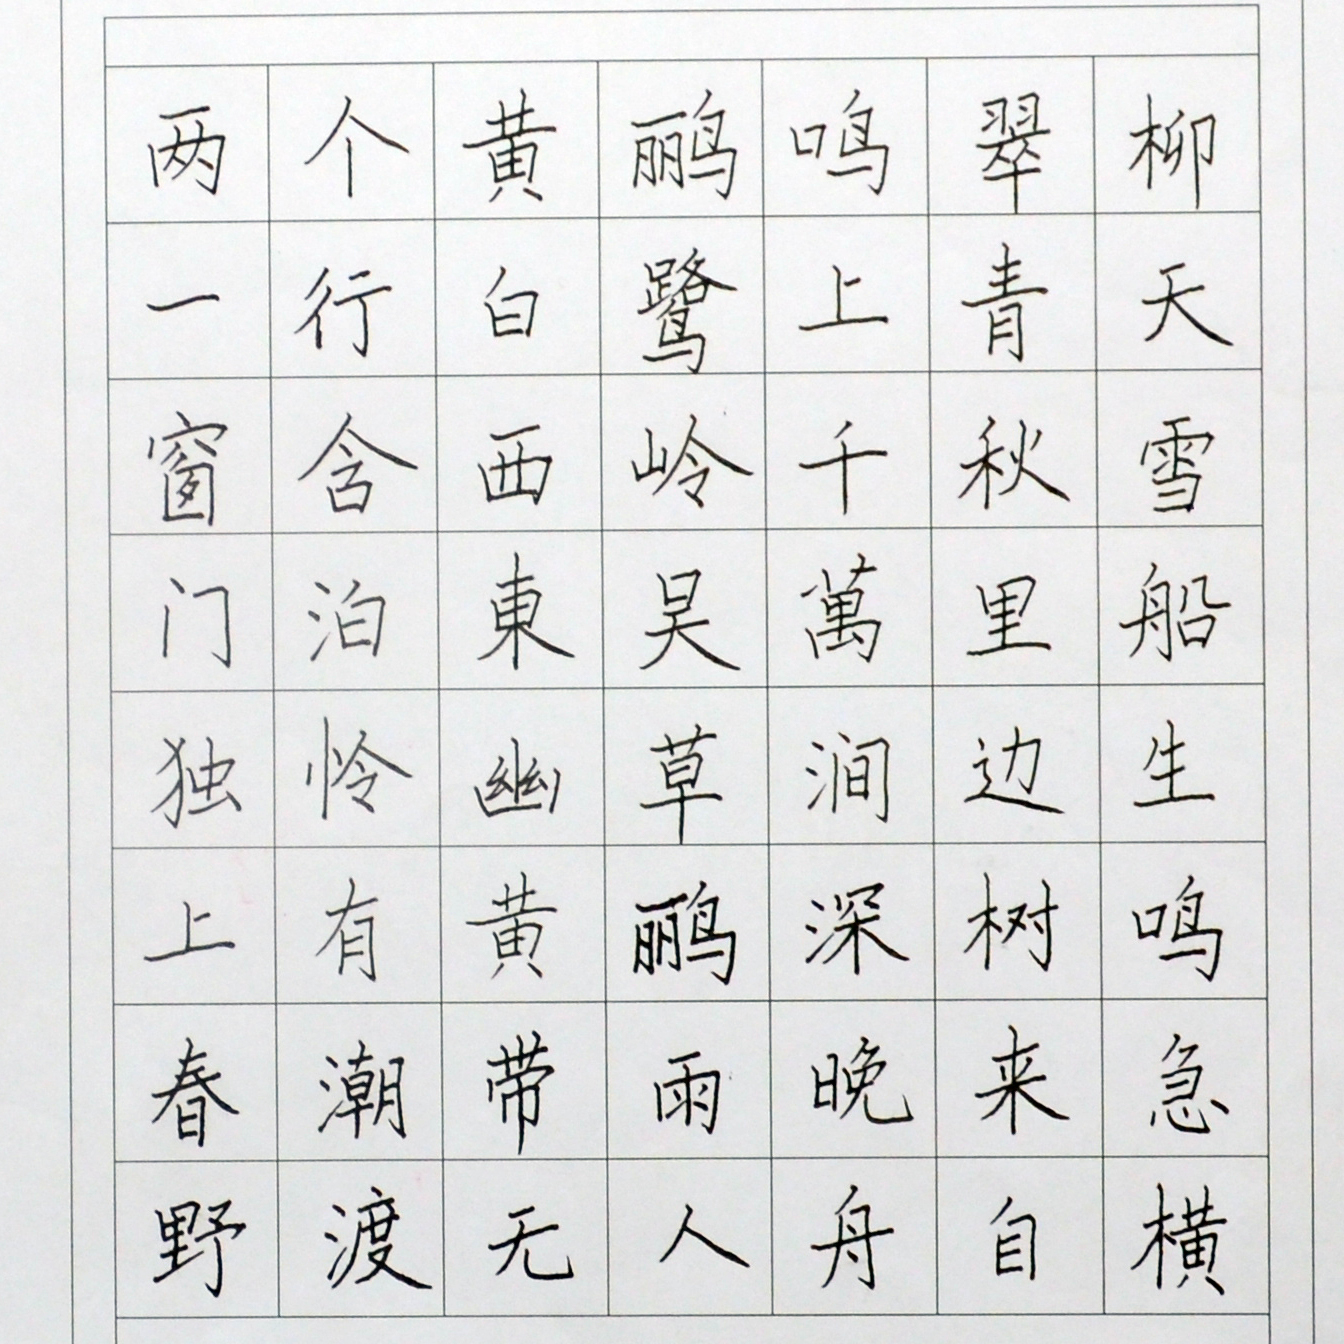 两个黄鹂鸣翠柳
一行白鹭上青天
窗含西岭千秋雪
门泊東吴萬里船
独怜幽草涧边生
上有黄鹂深树鸣
春潮带雨晚来急
野渡无人舟自横